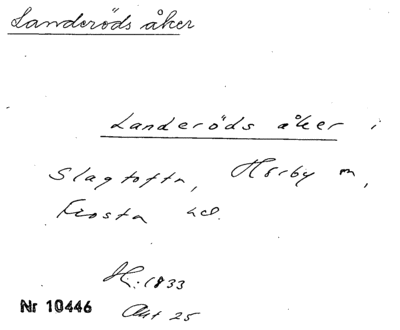 Landeröds åker
Landeröds åker i
Slagtofta, Hörby sn,
Frosta hd.
H: 1833
Nr 10446
Akt 25